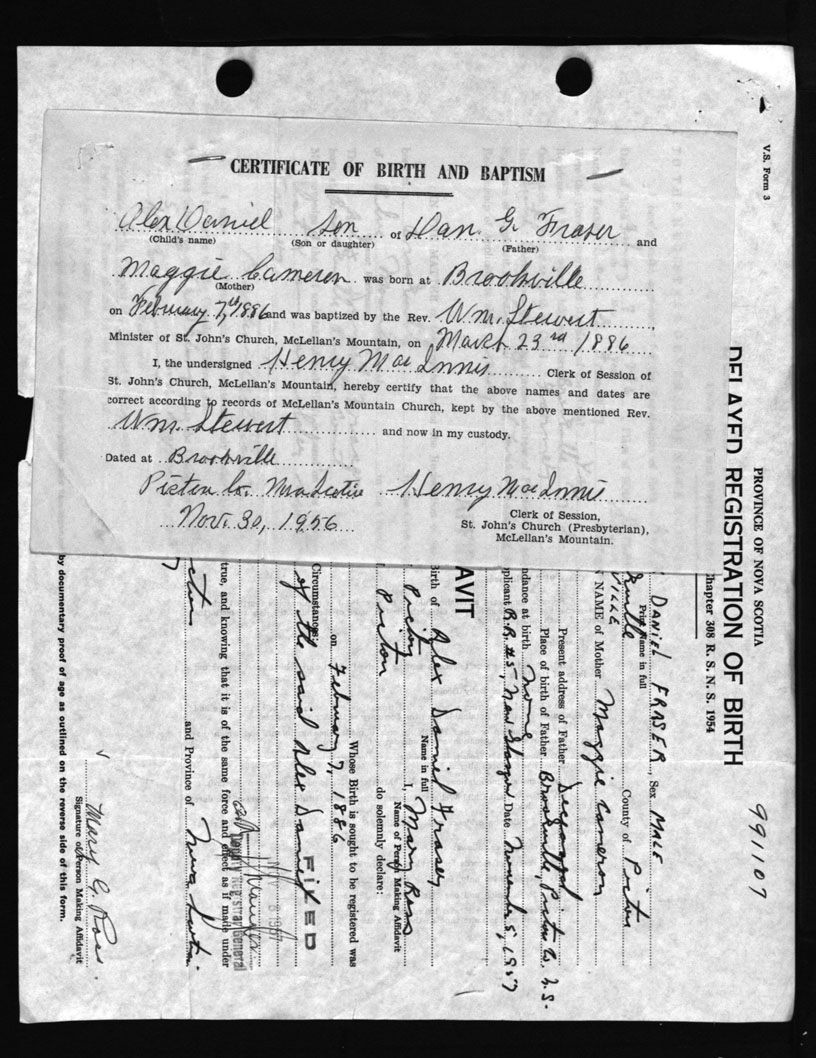 CERTIFICATE OF BIRTH AND BAPTISM
Alex Daniel Son of Dan. G. Fraser and
(Child's name) (Son or daughter) (Father)
Maggie Cameron was born at Brookville
(Mother)
on February 7th, 1886 and was baptized by the Rev. Wm. Stewert,
Minister of St. John's Church, McLellan's Mountain, on March 23rd 1886
I, the undersigned Henry MacInnis Clerk of Session of
St. John's Church, McLellan's Mountain, hereby certify that the above names and dates are
correct according to records of McLellan's Mountain Church, kept by the above mentioned Rev.
Wm. Stewert and now in my custody.
Dated at Brookville
Pictou Co. Nova Scotia Henry MacInnis
Nov. 30, 1956
Clerk of Session,
St. John's Church (Presbyterian),
McLellan's Mountain.
V.S. Form 3
991107
PROVINCE OF NOVA SCOTIA
DELAYED REGISTRATION OF BIRTH
Chapter 308 R. S. N. S. 1954
DANIEL FRASER, Sex MALE
Print Name in full
County of Pictou
NAME of Mother Maggie Cameron
Present address of Father Deceased
Place of birth of Father Brookville, Pictou Co. N.S.
ndance at birth None
pplicant R.R. #5, New Glasgow Date November 5, 1957
AVIT
Birth of Alex Daniel Fraser
Name in full
I, Mary Ross
Name of Person Making Affidavit
Pictou do solemnly declare:
Whose Birth is sought to be registered was
on February 7, 1886
Circumstances
of the said Alex Daniel
FILED
Deputy Registrar General
true, and knowing that it is of the same force and effect as if made under
and Province of Nova Scotia
Mary G. Ross
Signature of Person Making Affidavit
by documentary proof of age as outlined on the reverse side of this form.